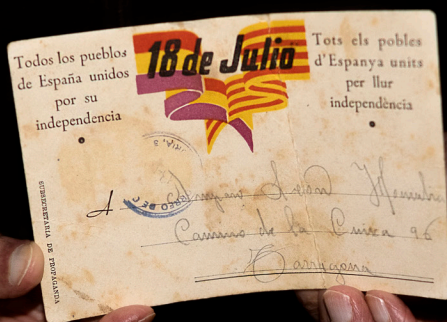 Todos los pueblos
de España unidos
por su
independencia
18 de Julio
Tots els pobles
d'Espanya units
per llur
independència
SUBSECRETARIA DE PROPAGANDA
CORREO DE C
A
Camino de la Cuixa 96
Tarragona